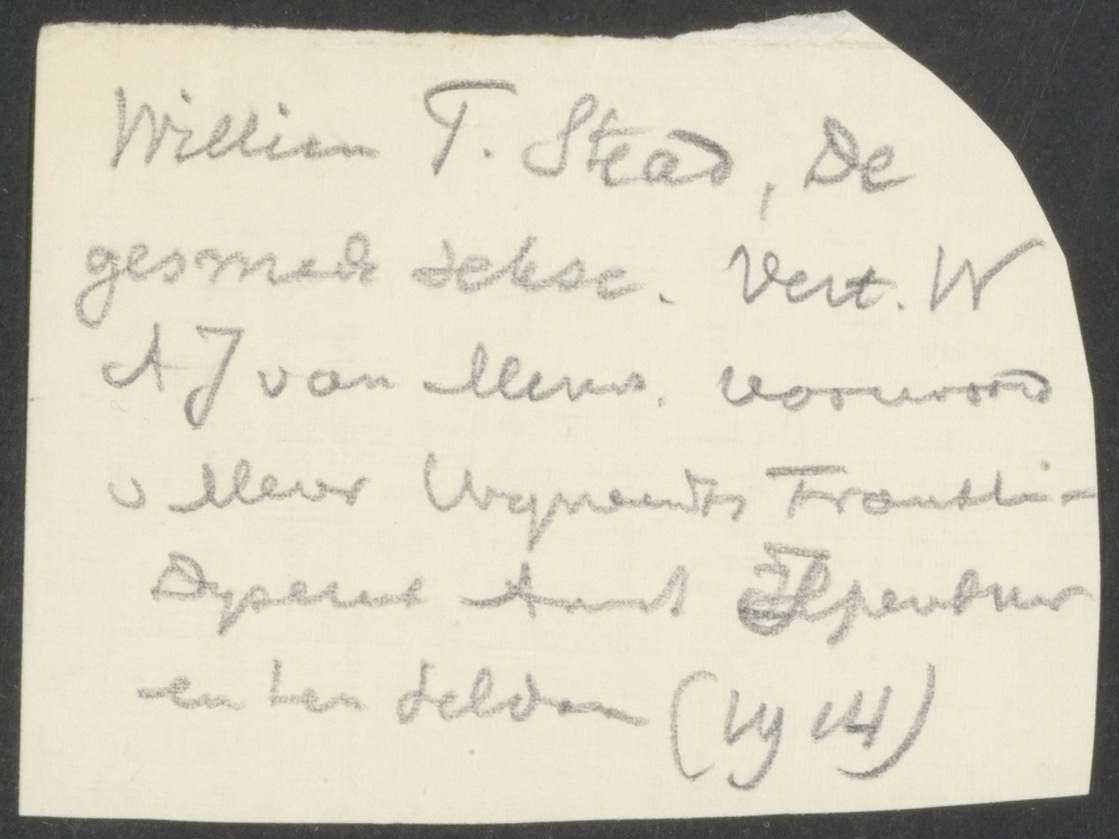 William T. Stead, De
gesmade sekse. Vert. W
A J van Meurs. Voorwoord
v Mevr Wynaendts Francken-
Dyserinck Amst Ipenbuur
en ten Seldam (1914)